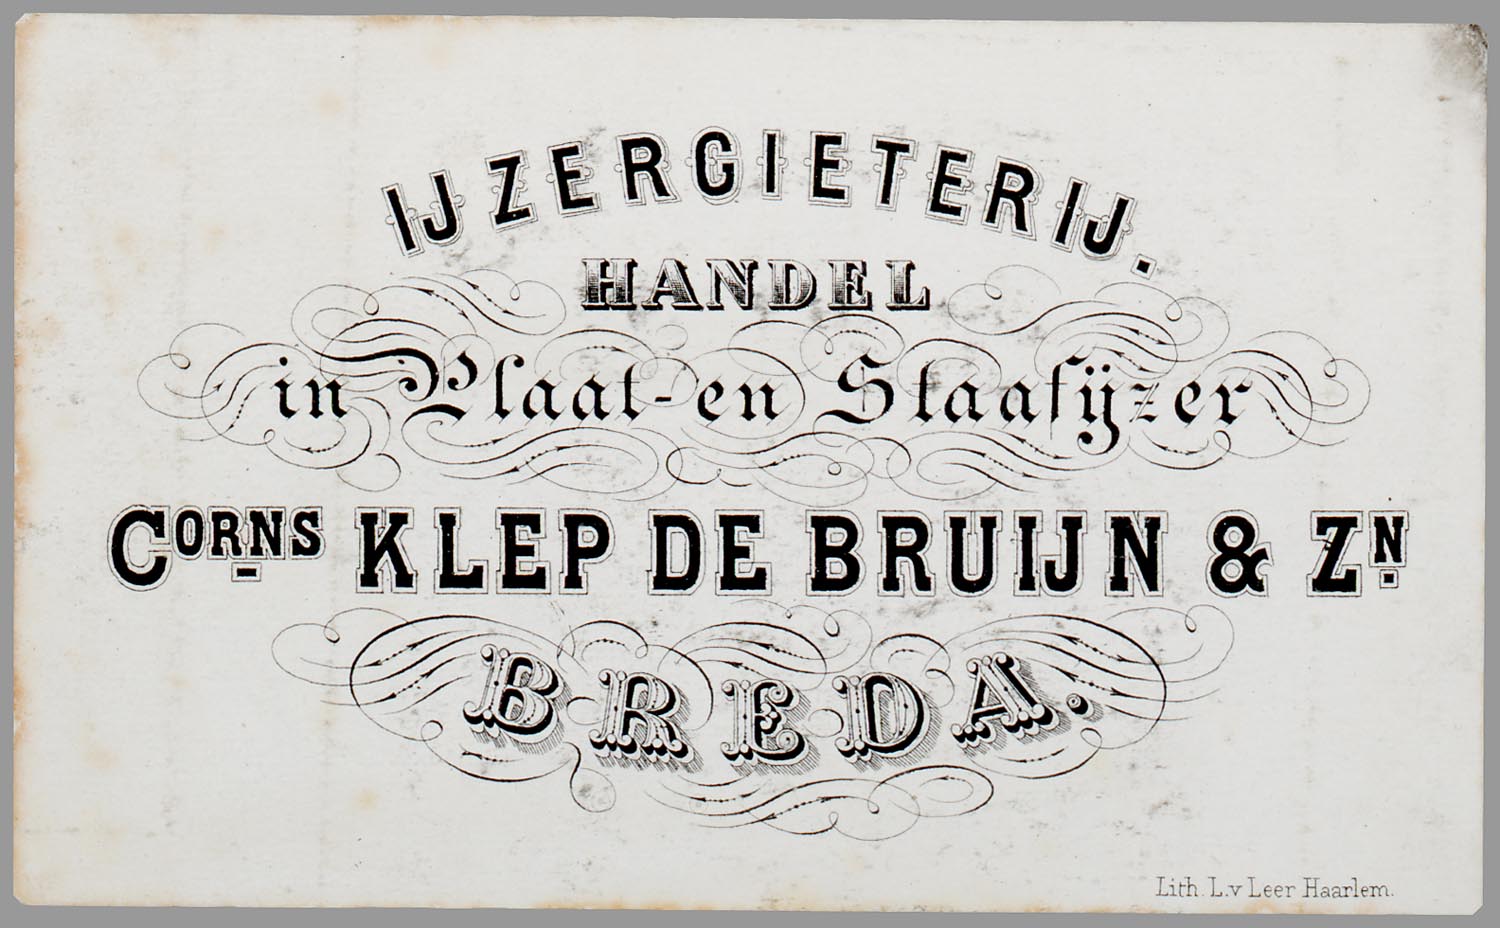 IJZERGIETERIJ.
HANDEL
in Plaat- en Staafijzer
CORNS KLEP DE BRUIJN & ZN.
BREDA.
Lith. L. v Leer Haarlem.